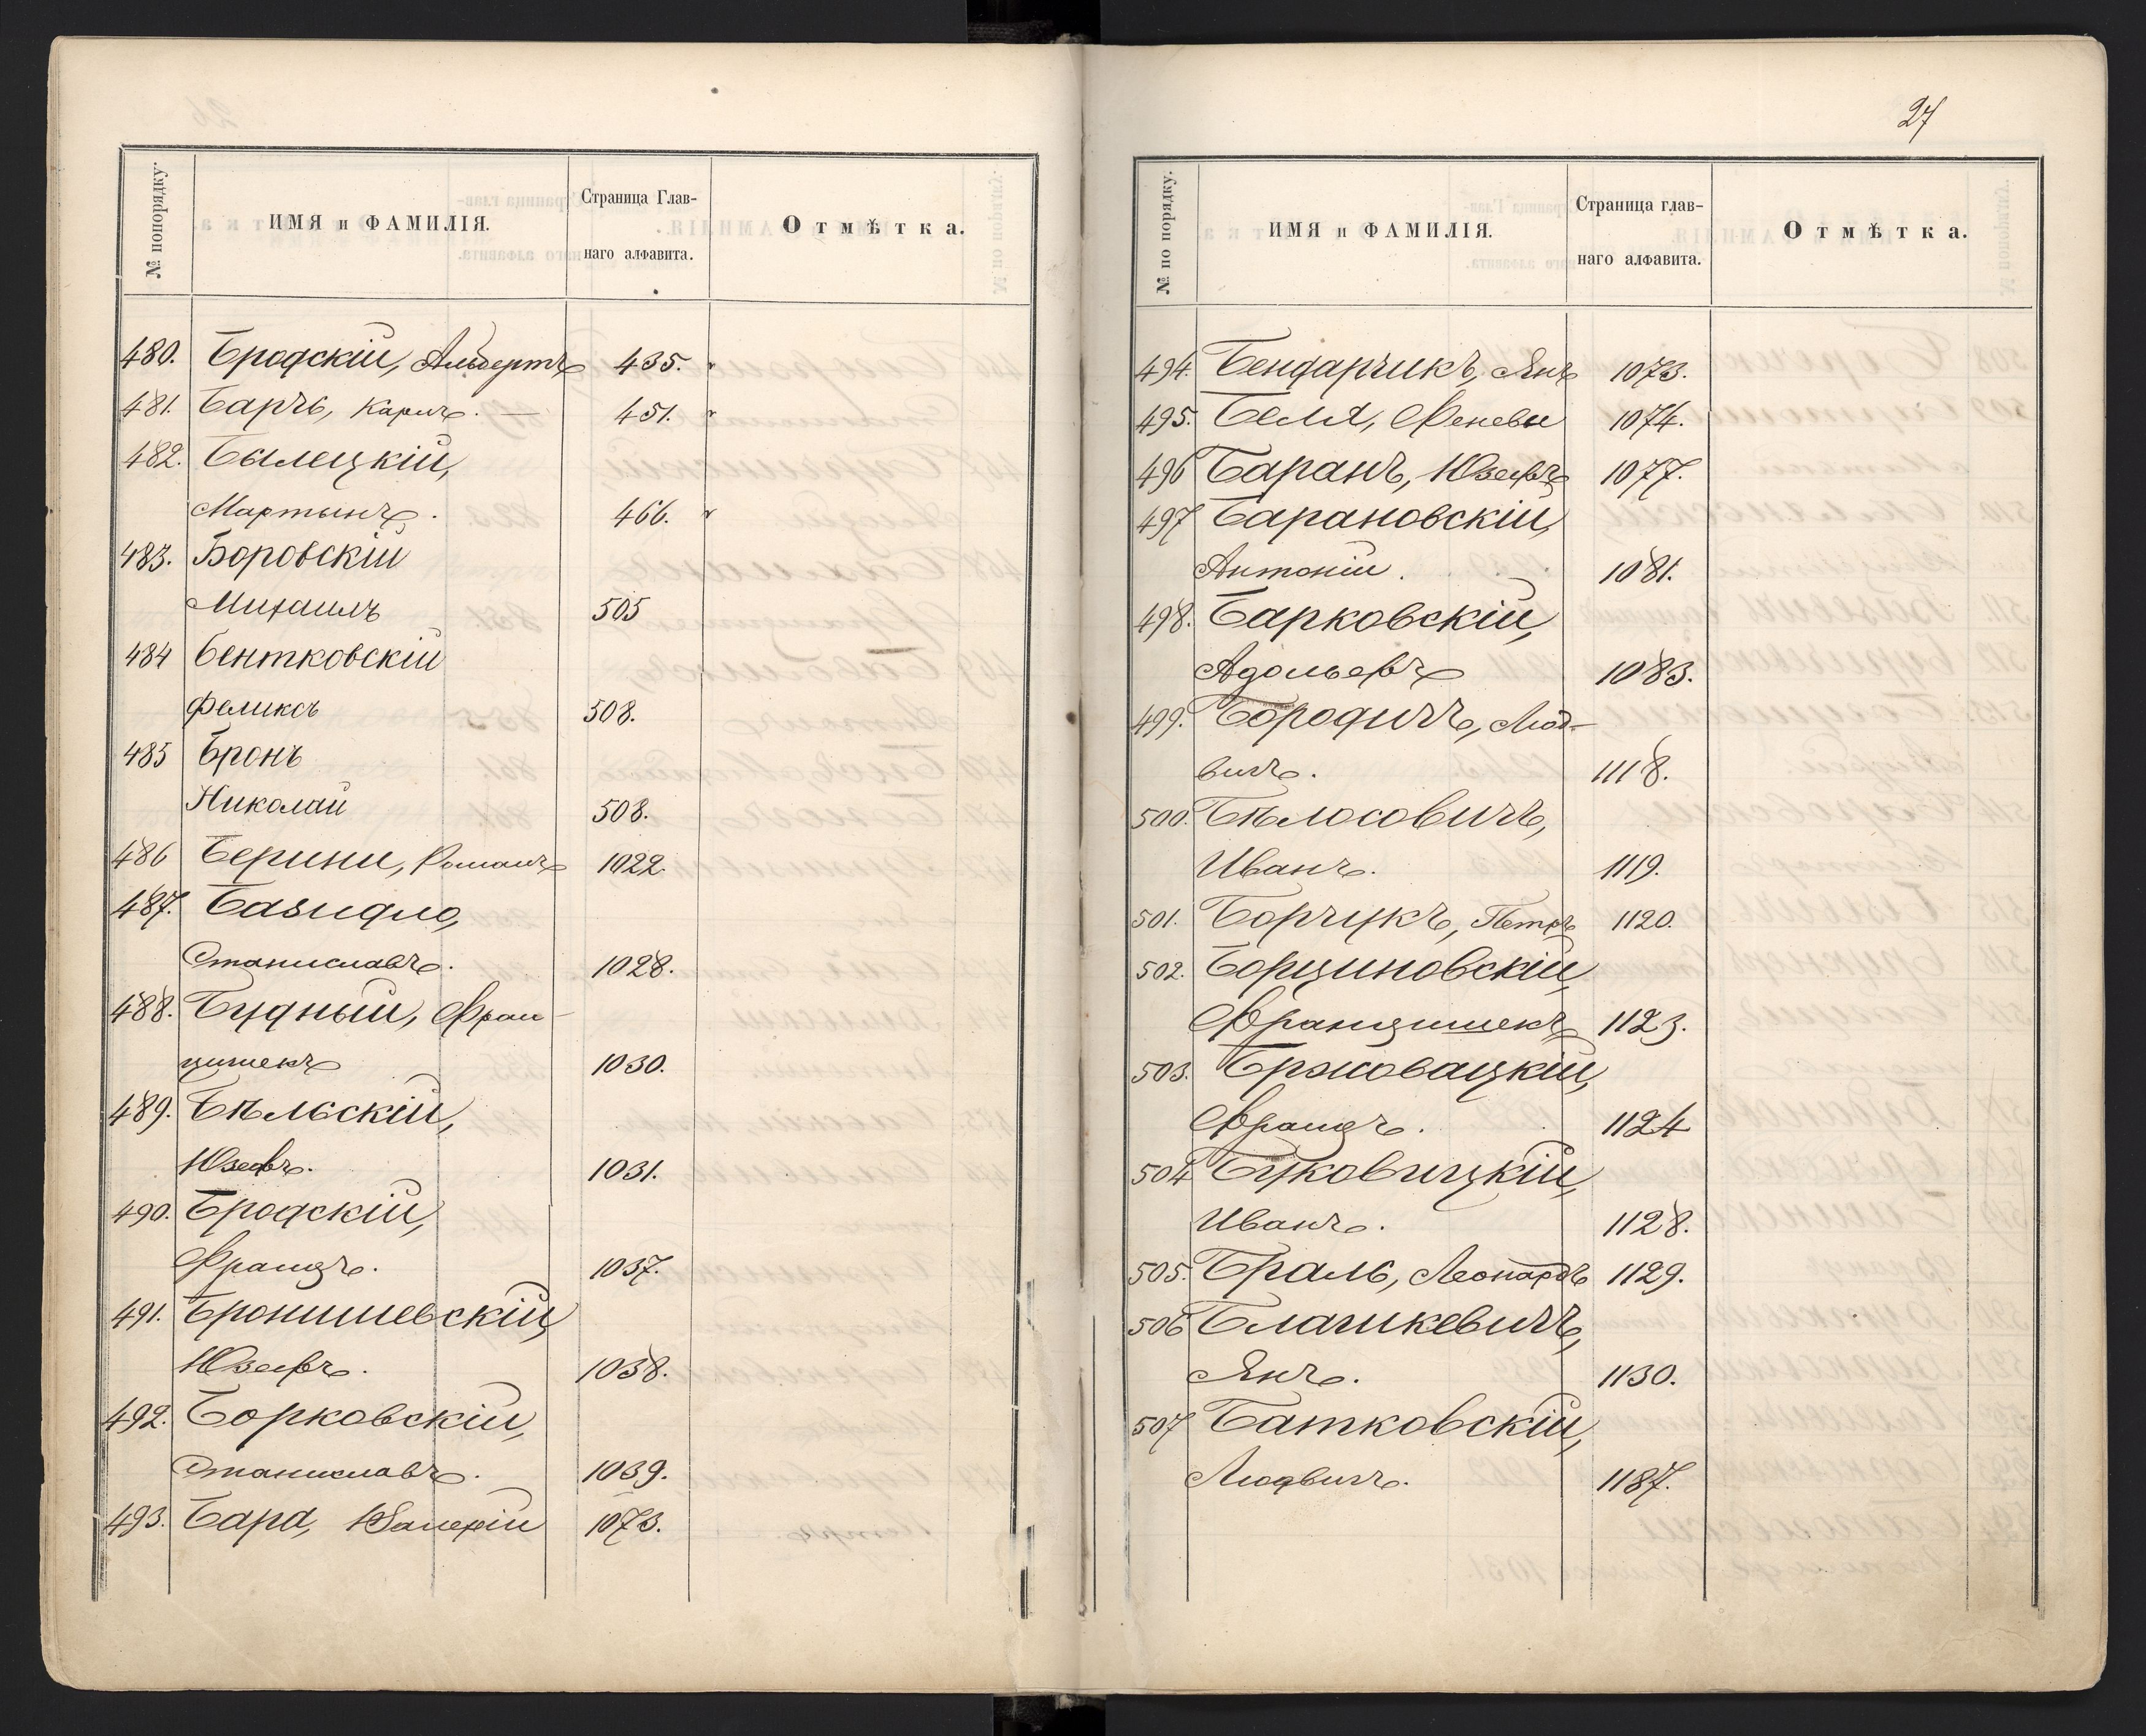 № попорядку.
ИМЯ и ФАМИЛІЯ.
Страница Глав-
наго алфавита.
Отмѣтка.
480. Бродскій, Альбертъ 435.
481. Барчъ, Карлъ. — 451.
482. Былецкій,
Мартынъ. 466.
483. Боровскій
Михаилъ 505
484 Бентковскій
Феликсъ 508.
485 Бронъ
Николай 508.
486 Берини, Романъ 1022.
487. Базидло,
Станиславъ. 1028.
488. Будный, Фран-
цишекъ 1030.
489. Бѣльскій,
Юзефъ. 1031.
490. Бродскій,
Францъ. 1037.
491. Бронишевскій,
Юзефъ. 1038.
492. Борковскій,
Станиславъ. 1039.
493. Бара, Валерій 1073.
27
№ по порядку.
ИМЯ и ФАМИЛІЯ.
Страница глав-
наго алфавита.
Отмѣтка.
494. Бендарчикъ, Янъ 1073.
495. Беля, 1074.
496 Баранъ, Юзефъ 1077.
497 Барановскій,
Антоній. 1081.
498. Барковскій,
Адольфъ 1083.
499. Бородичъ, Люд-
вигъ. 1118.
500. Бѣлосовичъ,
Иванъ. 1119.
501. Борчукъ, Петръ 1120.
502. Борциновскій,
Францишекъ 1123.
503. Бржовацкій,
Францъ. 1124
504 Буковицкій,
Иванъ. 1128.
505. Браль, Леонардъ 1129.
506 Блашкевичъ,
Янъ. 1130.
507 Батковскій,
Людвигъ. 1187.